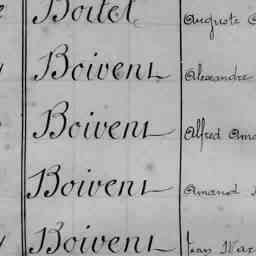 Boitel Auguste
Boivent Alexandre
Boivent Alfred
Boivent Amand
Boivent Jean